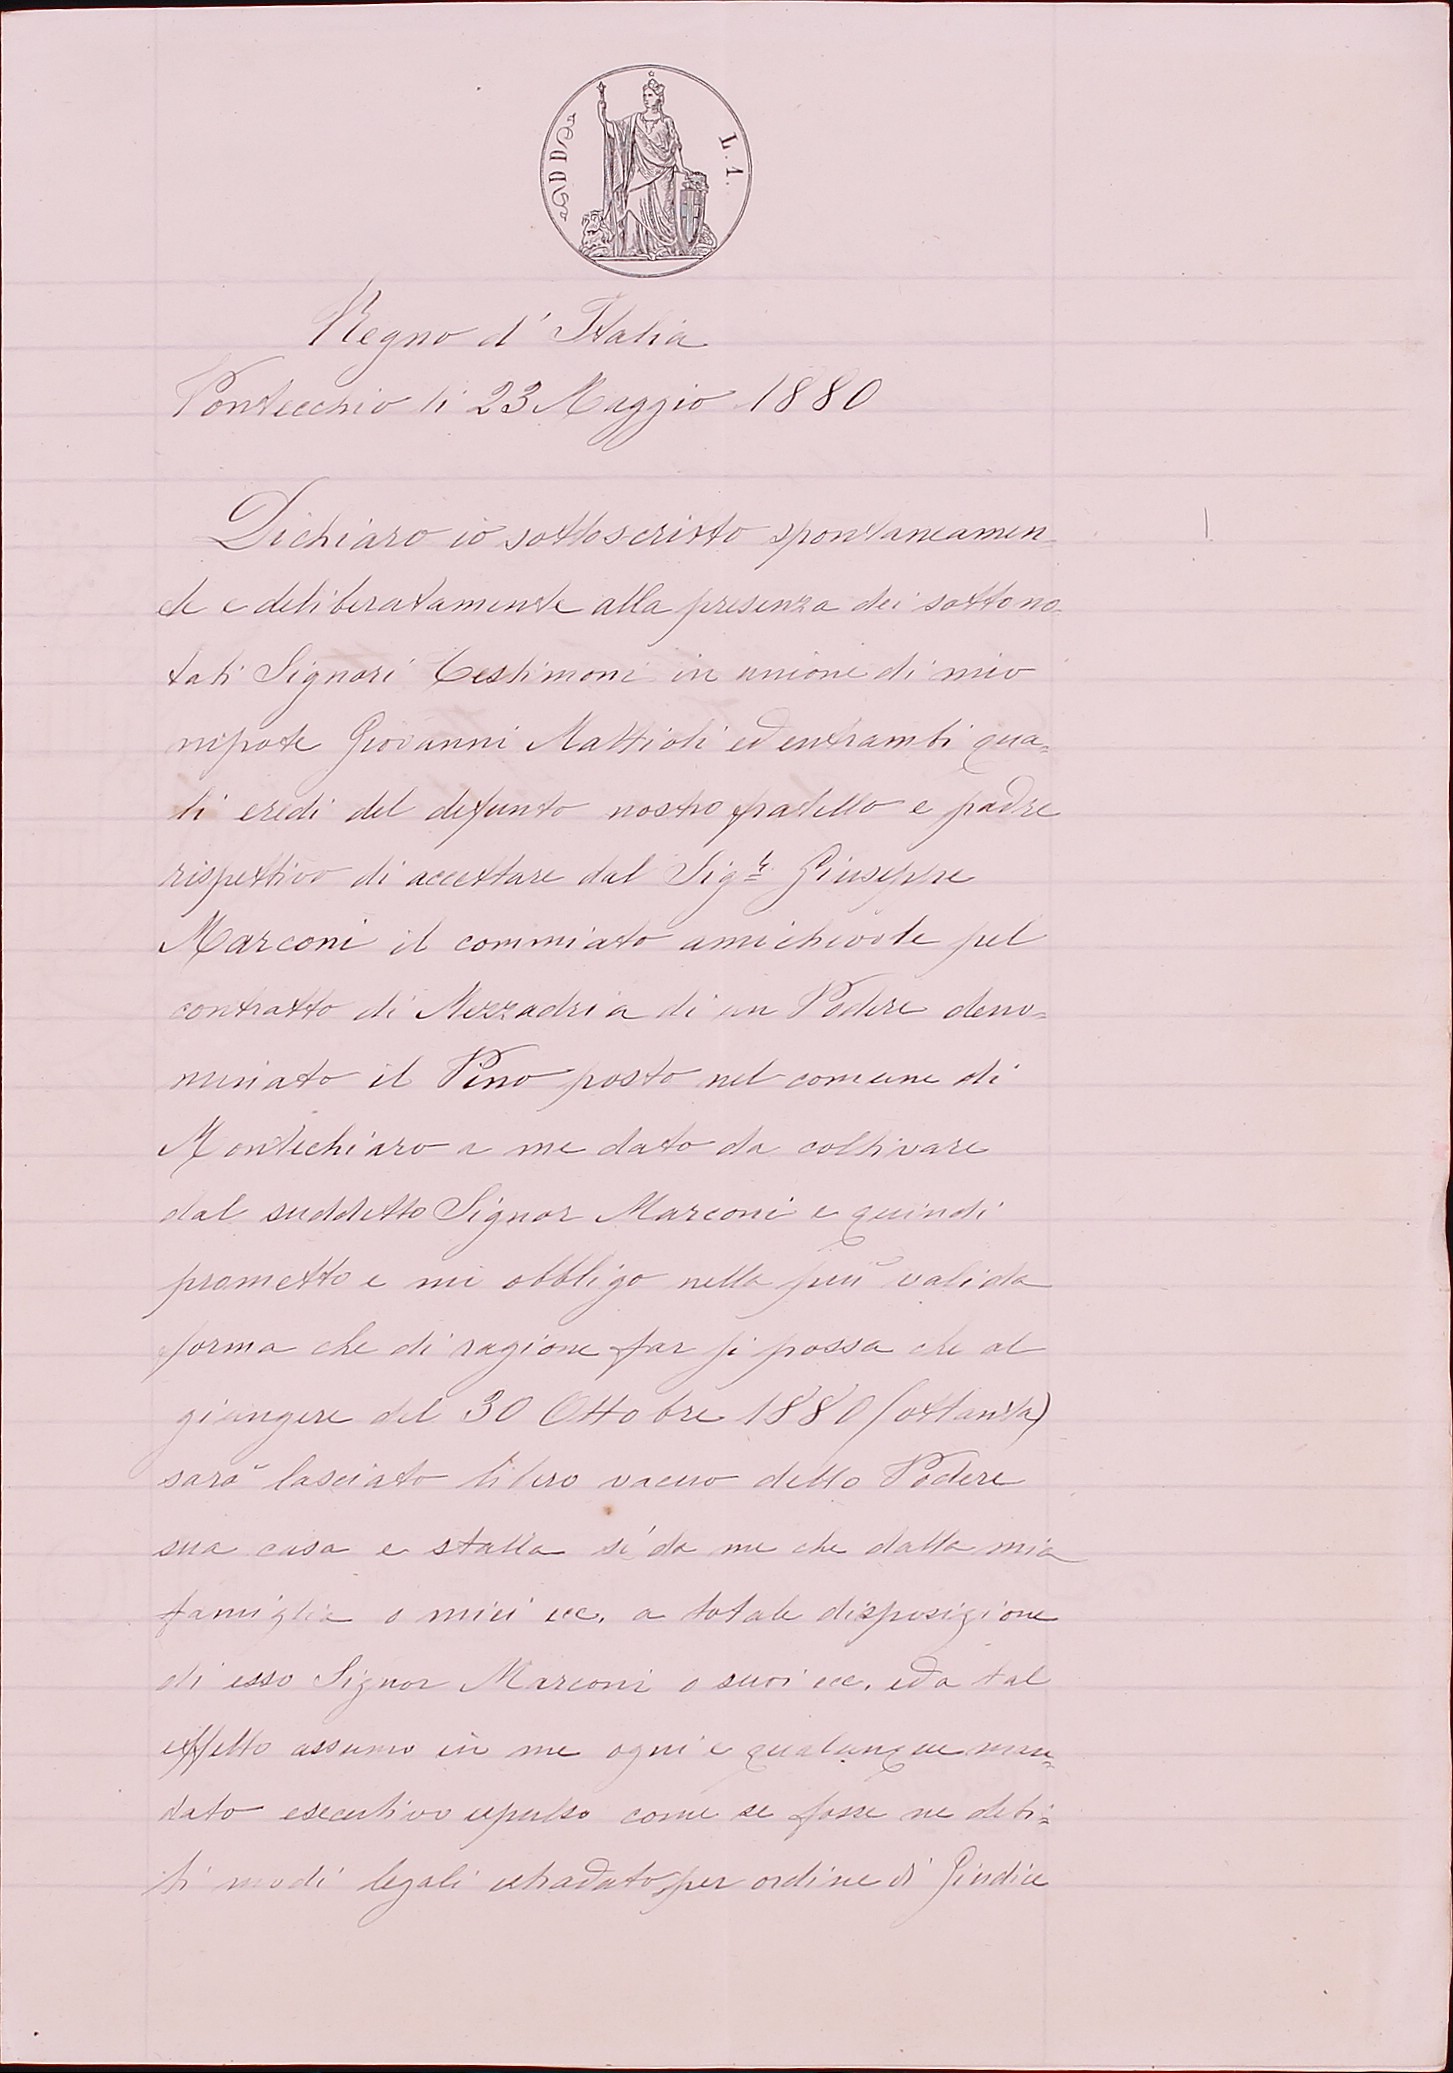 L. 1.
Regno d'Italia
Pontecchio li 23 Maggio 1880
Dichiaro io sottoscritto spontaneamen-
te e deliberatamente alla presenza dei sottono-
tati Signori Testimoni in unione di mio
nipote Giovanni Mattioli ed entrambi qua-
li eredi del defunto nostro fratello e padre
rispettivo di accettare dal Sigr. Giuseppe
Marconi il commiato amichevole pel
contratto di Mezzadria di un Podere deno-
minato il Pino posto nel comune di
Montechiaro a me dato da coltivare
dal suddetto Signor Marconi e quindi
prometto e mi obbligo nella più valida
forma che di ragione far si possa che al
giungere del 30 Ottobre 1880 (ottanta)
sarà lasciato libero vacuo detto Podere
sua casa e stalla sì da me che dalla mia
famiglia o miei ecc. a totale disposizione
di esso Signor Marconi o suoi ecc. ed a tal
effetto assumo in me ogni e qualunque man-
dato esecutivo espulso come se fosse ne debi-
ti modi legali estradato per ordine di Giudice